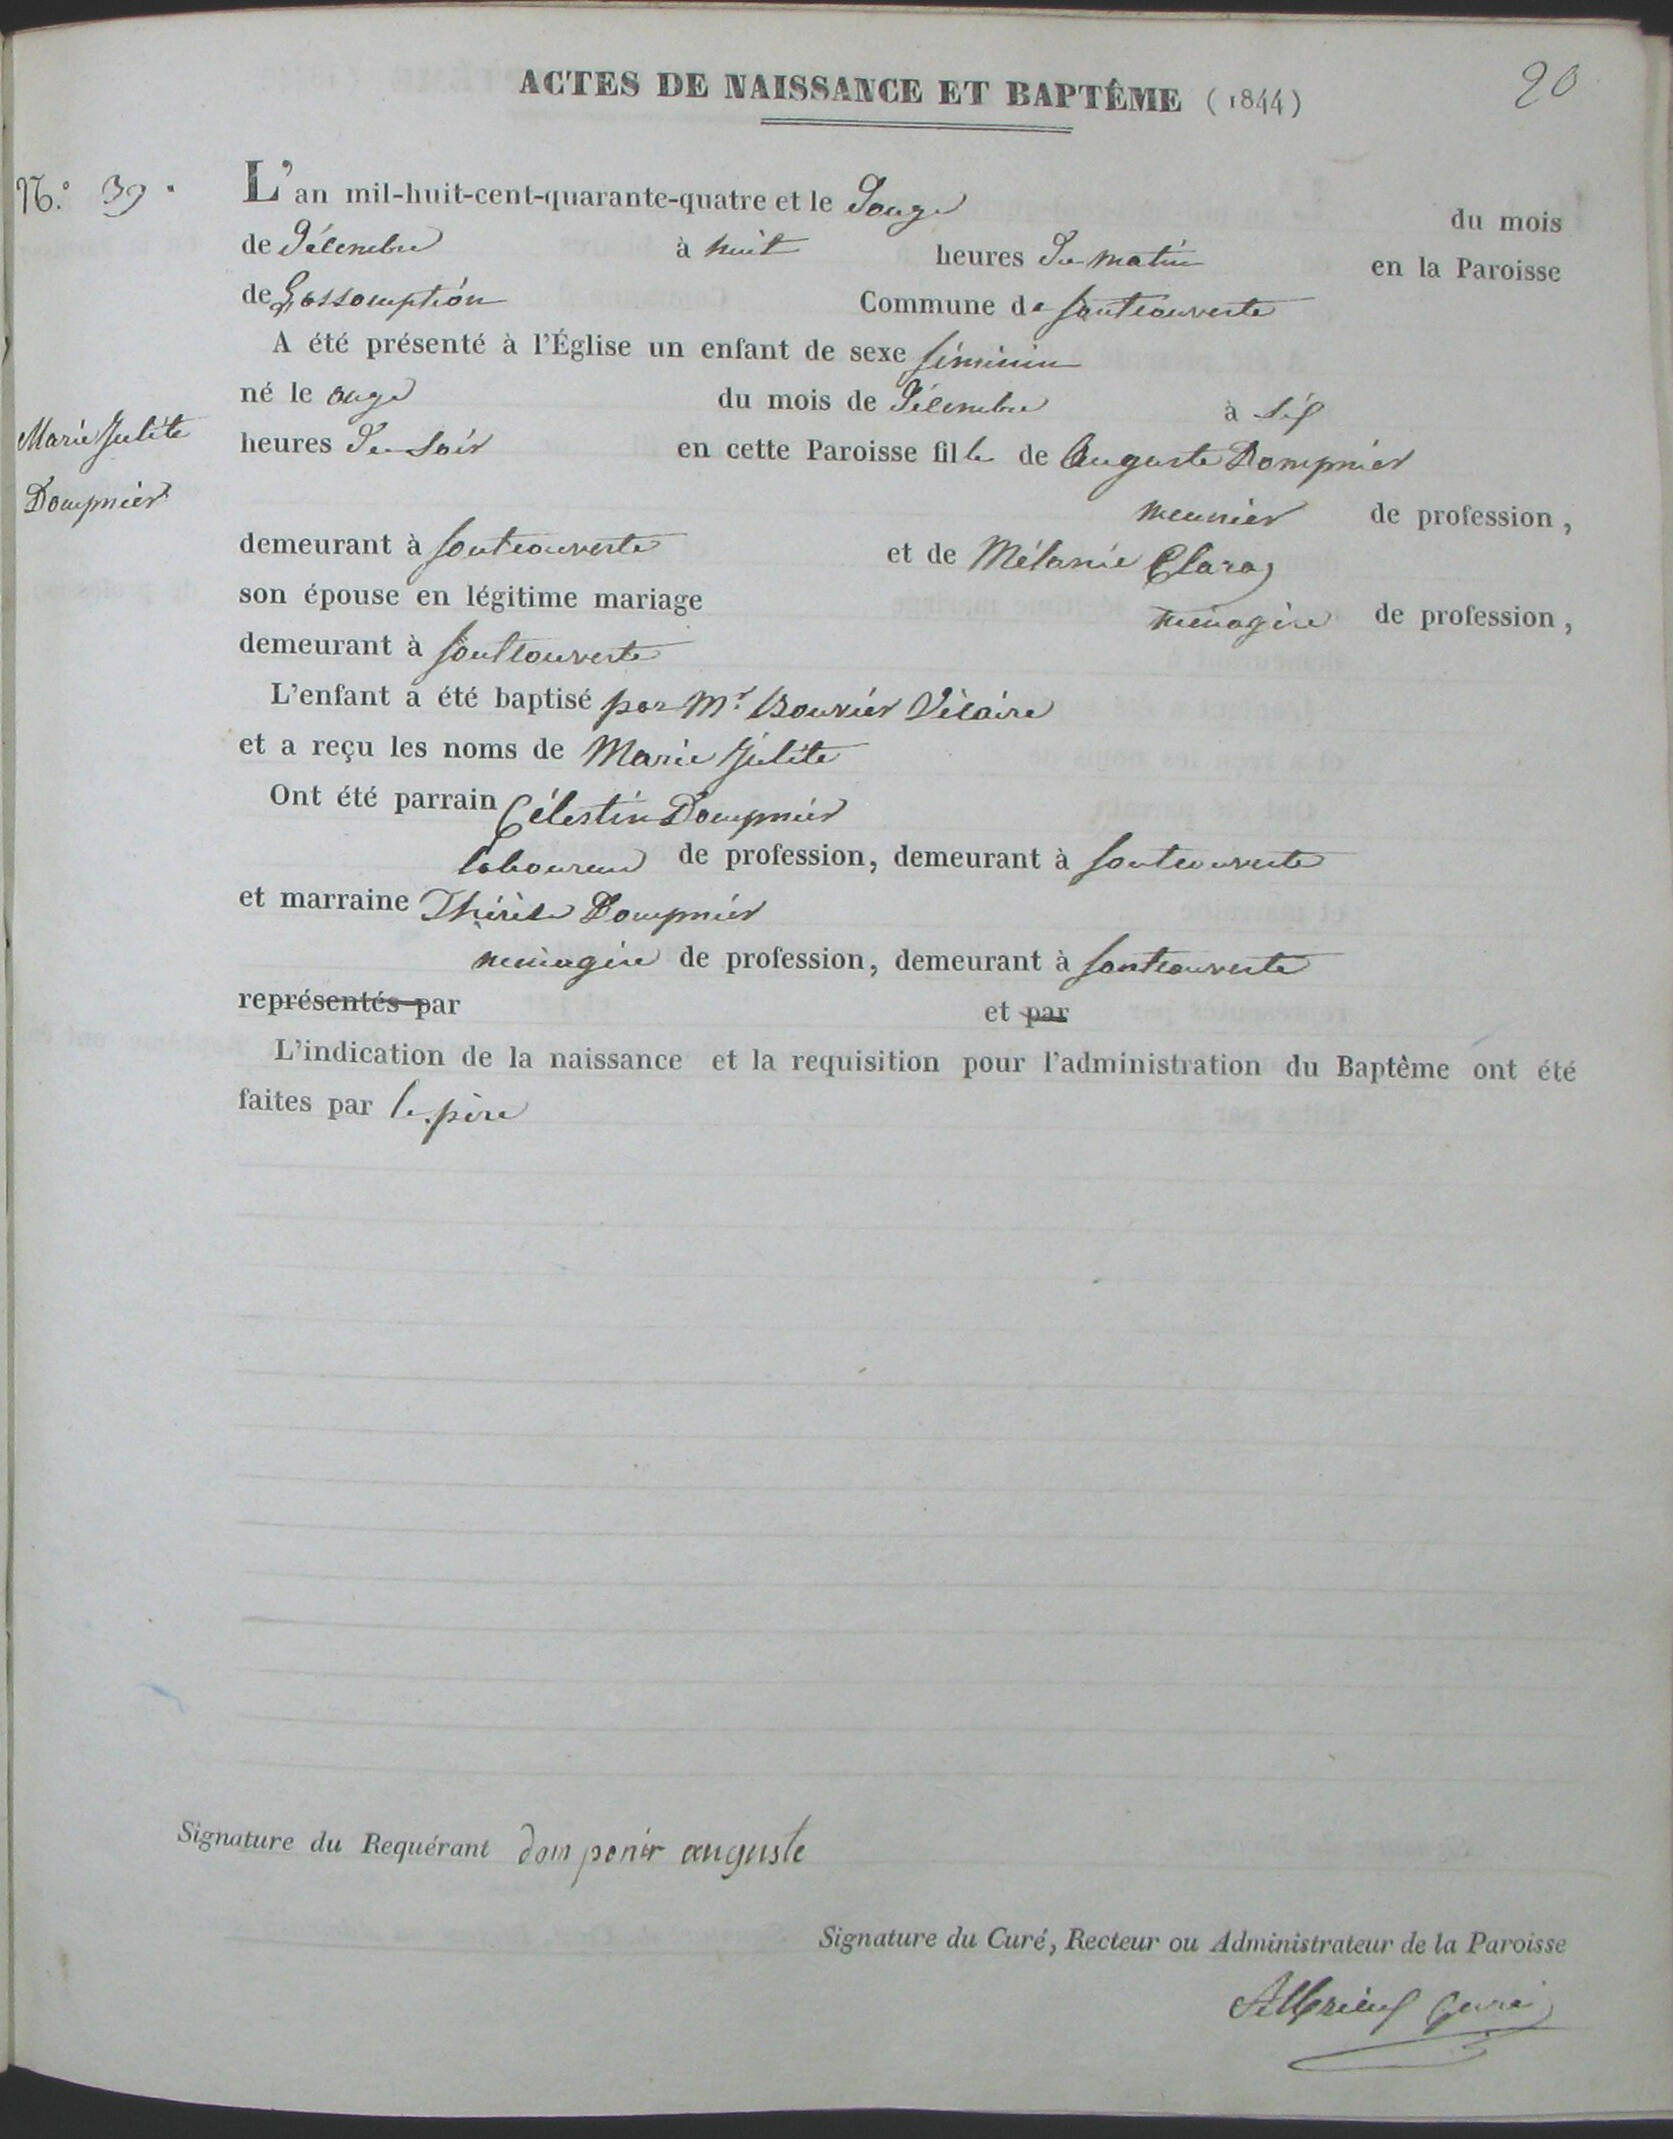 ACTES DE NAISSANCE ET BAPTÊME (1844)
20
N.° 39.
L'an mil-huit-cent-quarante-quatre et le Douze du mois
de Décembre à huit heures Du matin en la Paroisse
de Lassomption Commune de fontcouverte
A été présenté à l'Église un enfant de sexe féminin
né le onze du mois de Décembre à six
Marie Julite
Dompnier
heures Du Soir en cette Paroisse fille de Auguste Dompnier
meunier de profession,
demeurant à fontcouverte et de Mélanie Claraz
son épouse en légitime mariage ménagère de profession,
demeurant à fontcouverte
L'enfant a été baptisé par Mr Bouvier Vicaire
et a reçu les noms de Marie Julite
Ont été parrain Célestin Dompnier
laboureur de profession, demeurant à fontcouverte
et marraine Thérèse Dompnier
ménagère de profession, demeurant à fontcouverte
représentés par et par
L'indication de la naissance et la requisition pour l'administration du Baptême ont été
faites par le père
Signature du Requérant dom penir auguste
Signature du Curé, Recteur ou Administrateur de la Paroisse
Curé